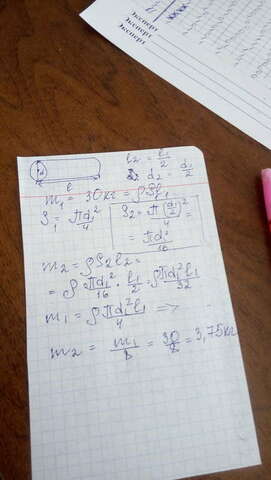 Эксперт
Эксперт
Эксперт
d
l
l₂ = l₁/2
d₂ = d₁/2
m₁ = 30кг = ρS₁l₁
S₁ = πd₁²/4
S₂ = π(d₁/2)²/4 =
= πd₁²/16
m₂ = ρS₂l₂ =
= ρ πd₁²/16 · l₁/2 = ρπd₁²l₁/32
m₁ = ρπd₁²l₁/4 =>
m₂ = m₁/8 = 30/8 = 3,75кг